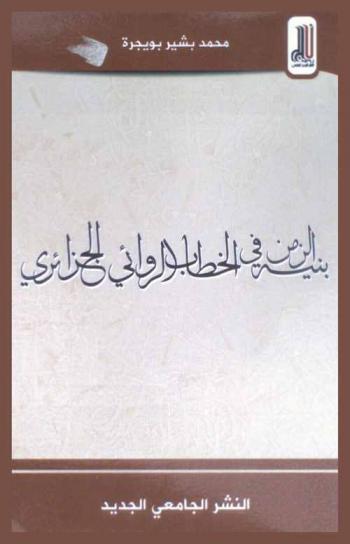 محمد بشير بويجرة
بنية الزمن في الخطاب الروائي الجزائري
النشر الجامعي الجديد